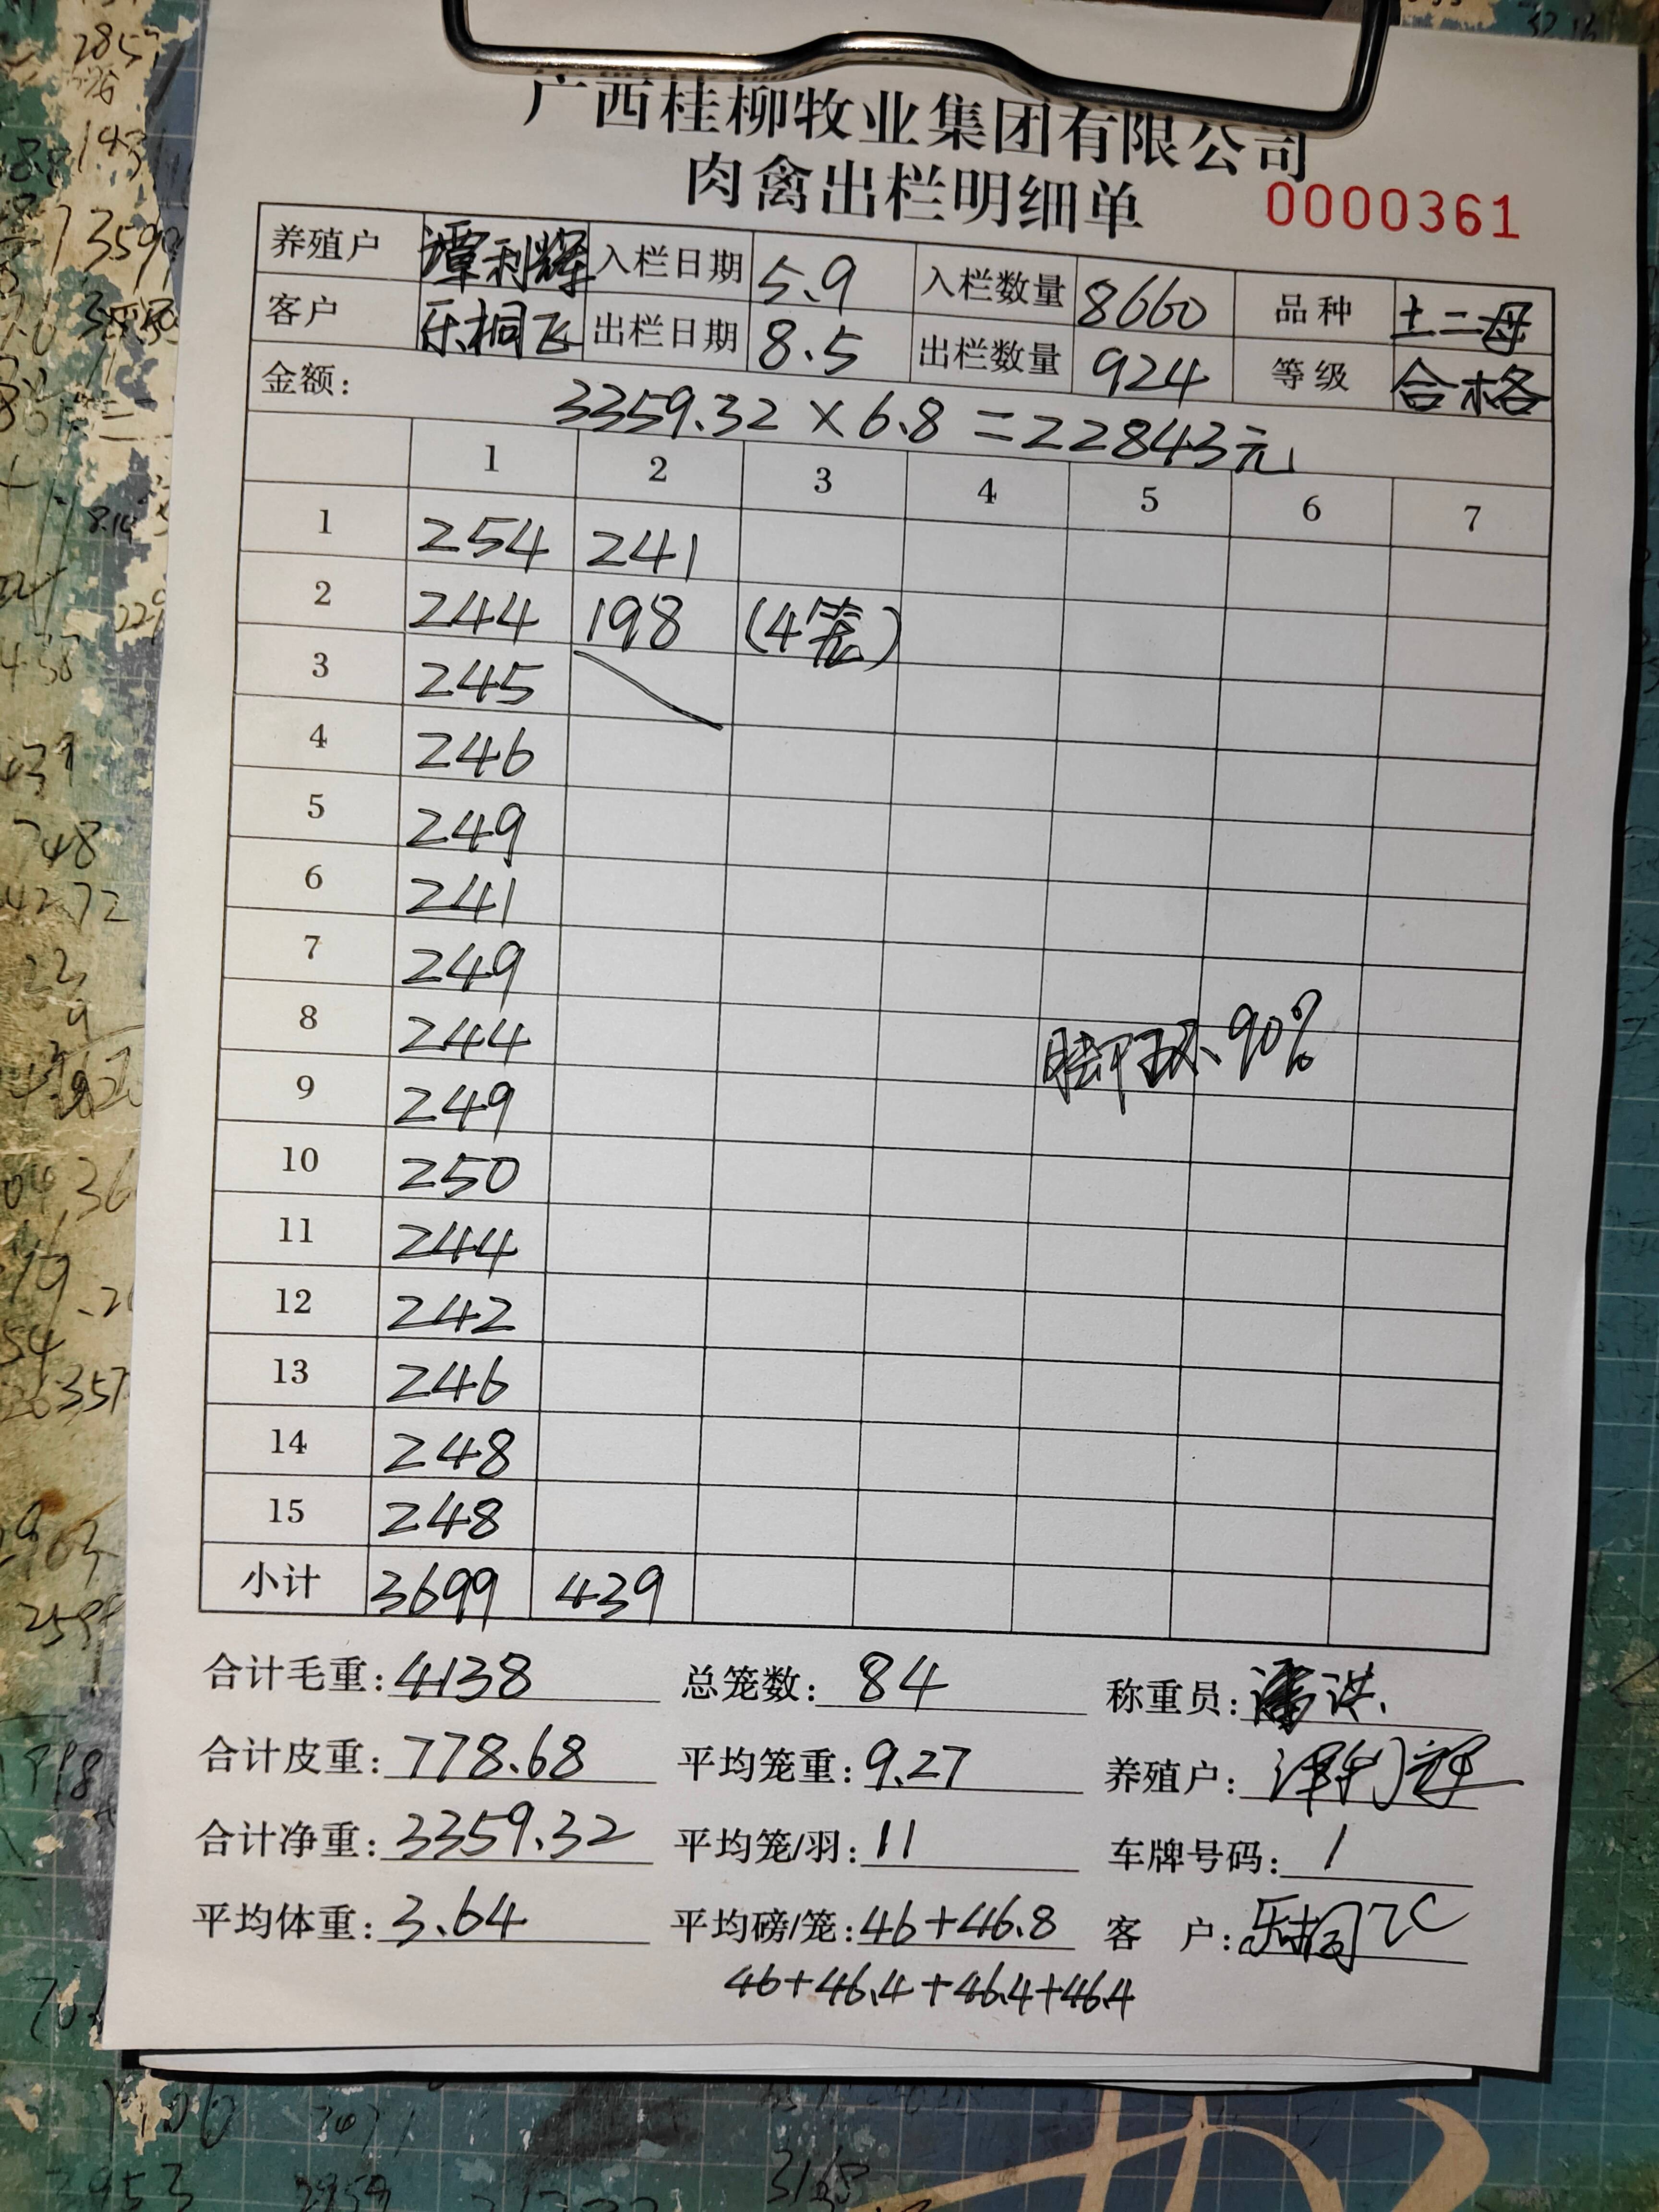 广西桂柳牧业集团有限公司
肉禽出栏明细单 0000361
养殖户 谭利辉 入栏日期 5.9 入栏数量 8660 品种 土二母
客户 乐桐飞 出栏日期 8.5 出栏数量 924 等级 合格
金额: 3359.32×6.8=22843元
1 2 3 4 5 6 7
1 254 241
2 244 198 (4笼)
3 245
4 246
5 249
6 241
7 249
8 244 脚环、90%
9 249
10 250
11 244
12 242
13 246
14 248
15 248
小计 3699 439
合计毛重: 4138 总笼数: 84 称重员: 潘洪.
合计皮重: 778.68 平均笼重: 9.27 养殖户: 谭利辉
合计净重: 3359.32 平均笼/羽: 11 车牌号码: 1
平均体重: 3.64 平均磅/笼: 46+46.8 客 户: 乐桐飞
46+46.4+46.4+46.4